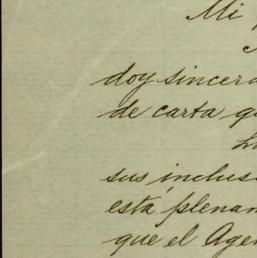 Mi
doy sincera
de carta q
sus inclus
está plenam
que el Agen